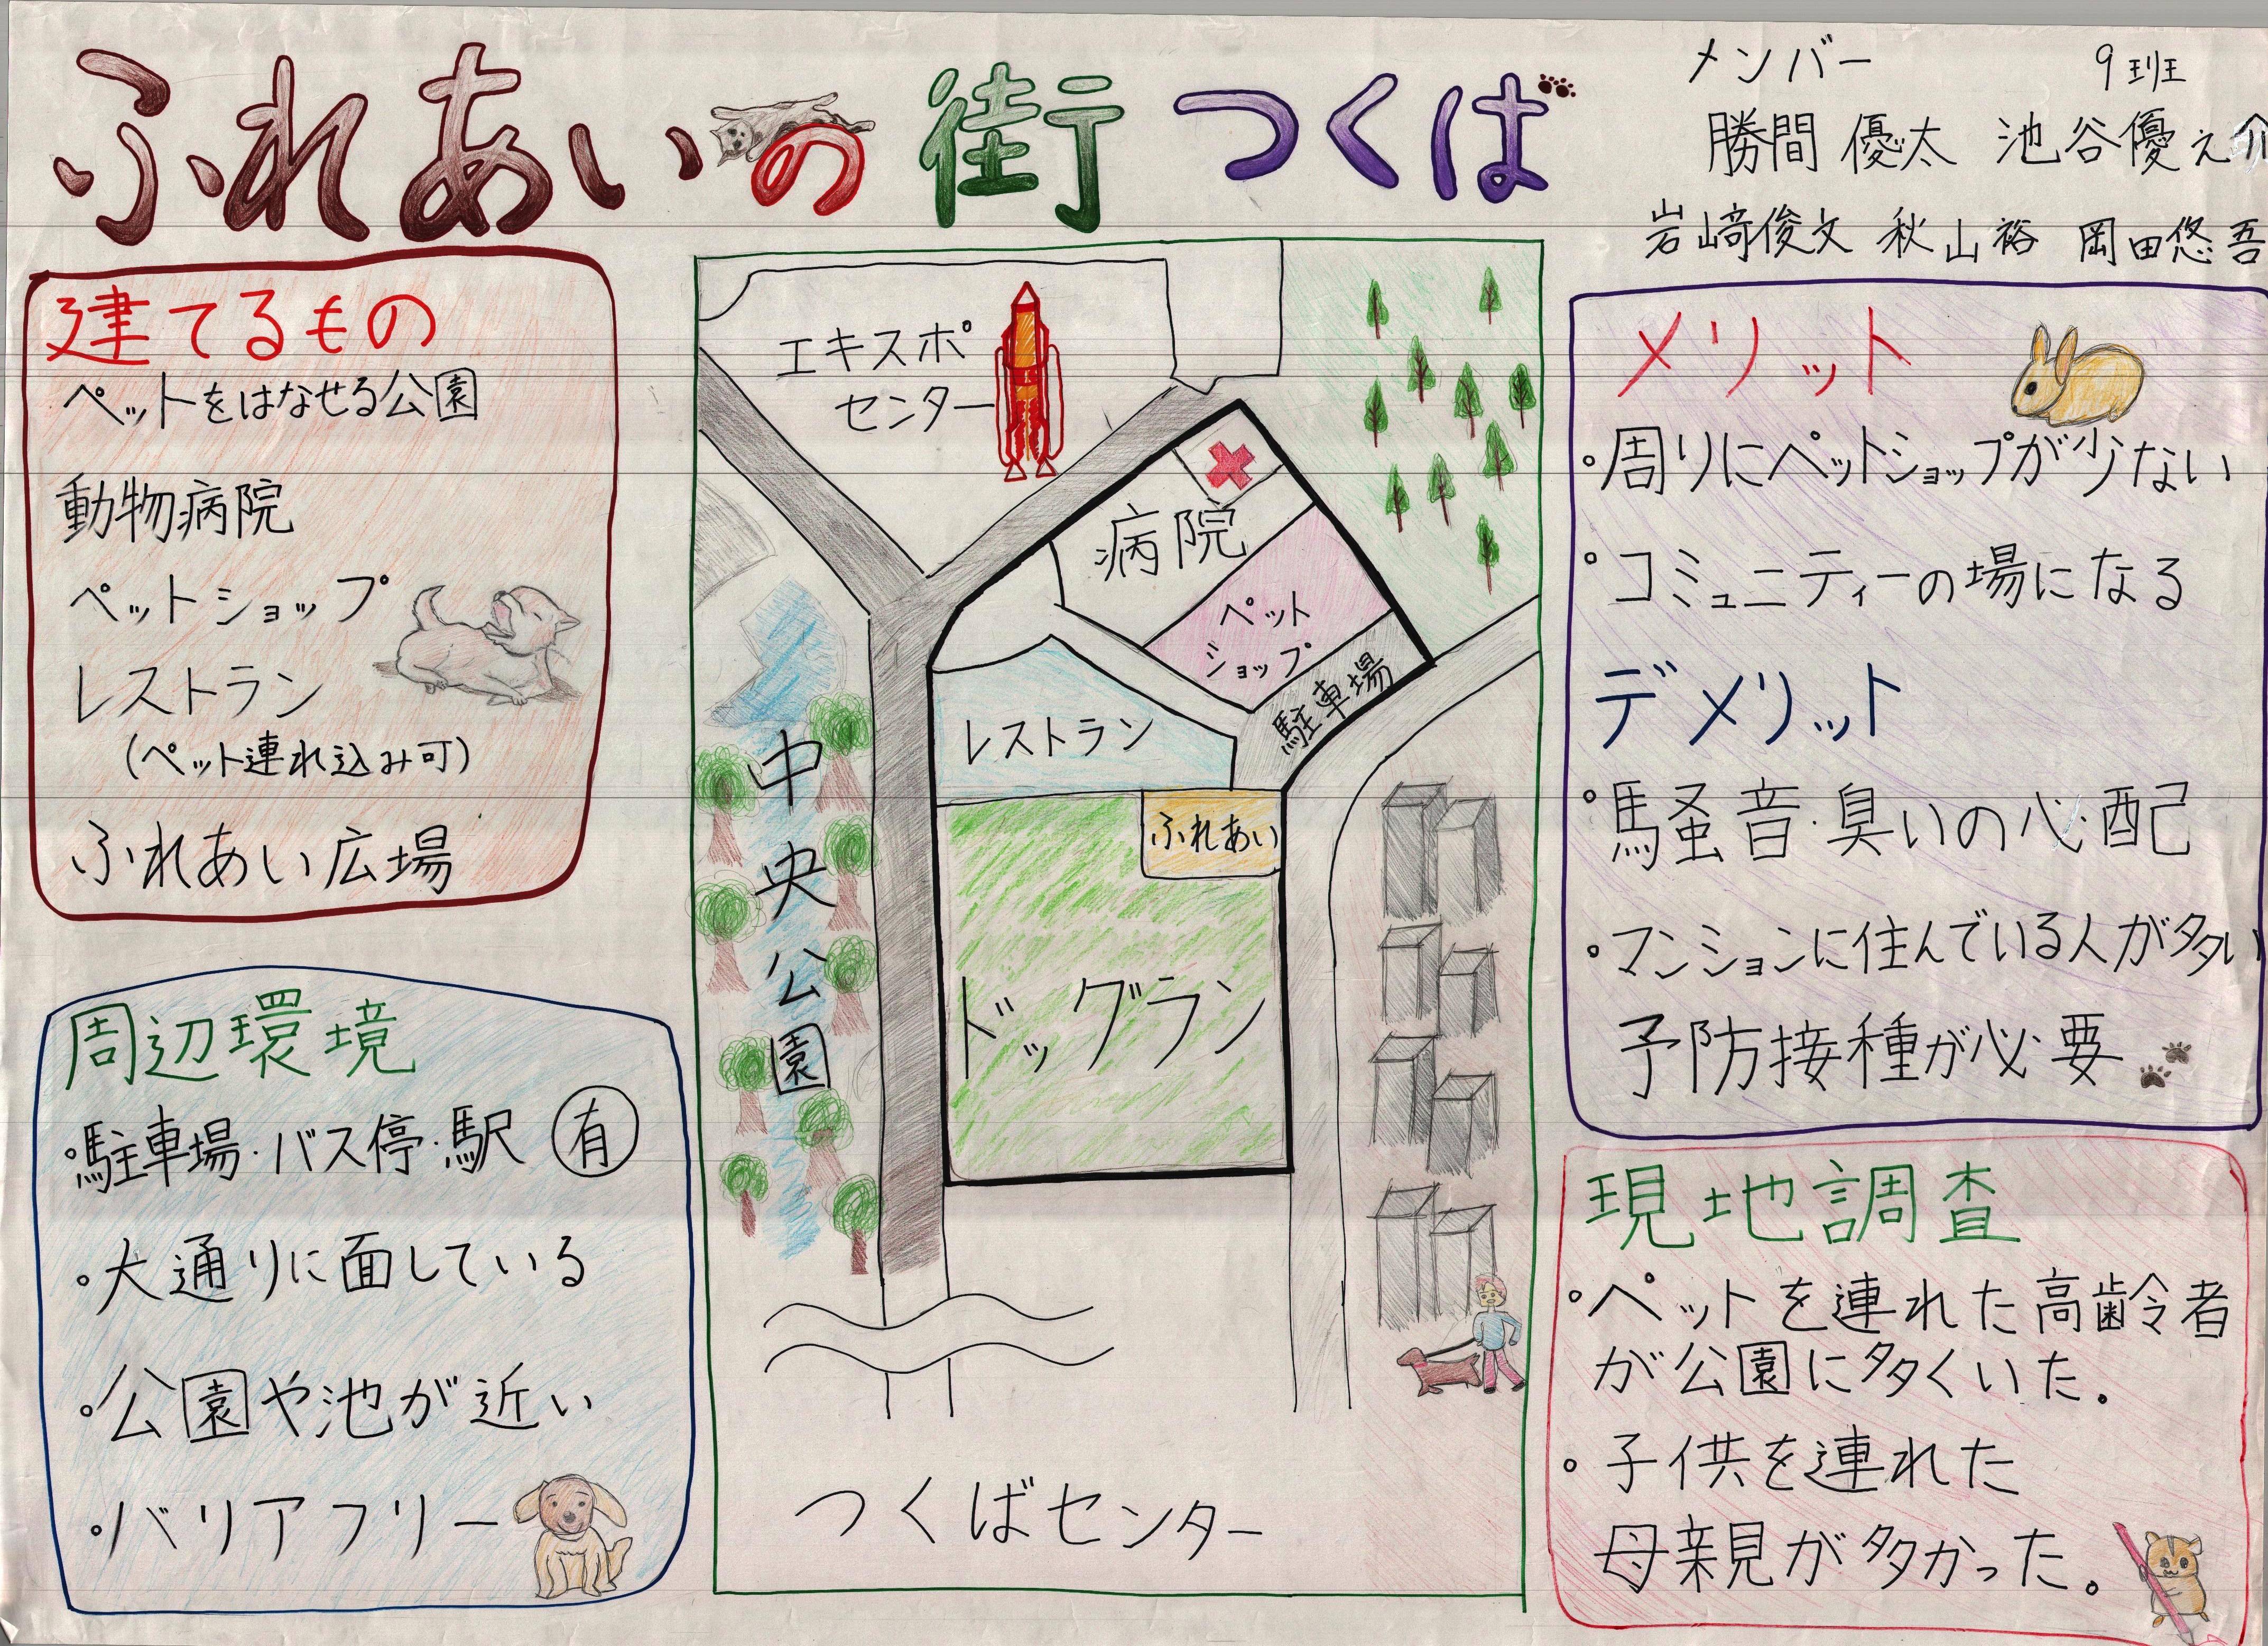 ふれあいの街つくば
メンバー 9班
勝間優太 池谷優之介
岩﨑俊文 秋山裕 岡田悠吾
建てるもの
ペットをはなせる公園
動物病院
ペットショップ
レストラン
(ペット連れ込み可)
ふれあい広場
周辺環境
・駐車場・バス停・駅 有
・大通りに面している
・公園や池が近い
・バリアフリー
エキスポ
センター
病院
ペット
ショップ
駐車場
レストラン
ふれあい
ドッグラン
中央公園
つくばセンター
メリット
・周りにペットショップが少ない
・コミュニティーの場になる
デメリット
・騒音・臭いの心配
・マンションに住んでいる人が多い
予防接種が必要
現地調査
・ペットを連れた高齢者
が公園に多くいた。
・子供を連れた
母親が多かった。